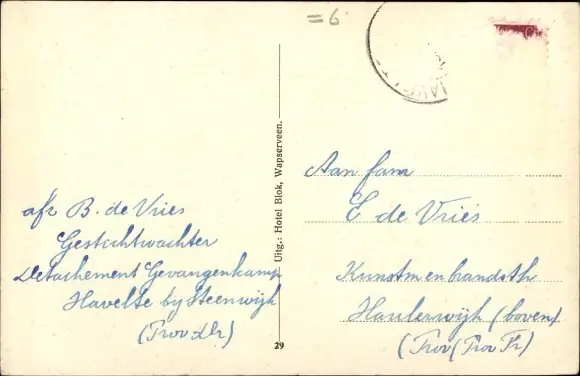 =6
afz B. de Vries
Gestichtwachter
Detachement Gevangenkamp
Havelte by Steenwijk
(Prov Dr)
Uitg.: Hotel Blok, Wapserveen.
29
Aan fam
de Vries
Kunstm en brandsth
Haulerwijk (boven)
(Prov (Prov Fr)